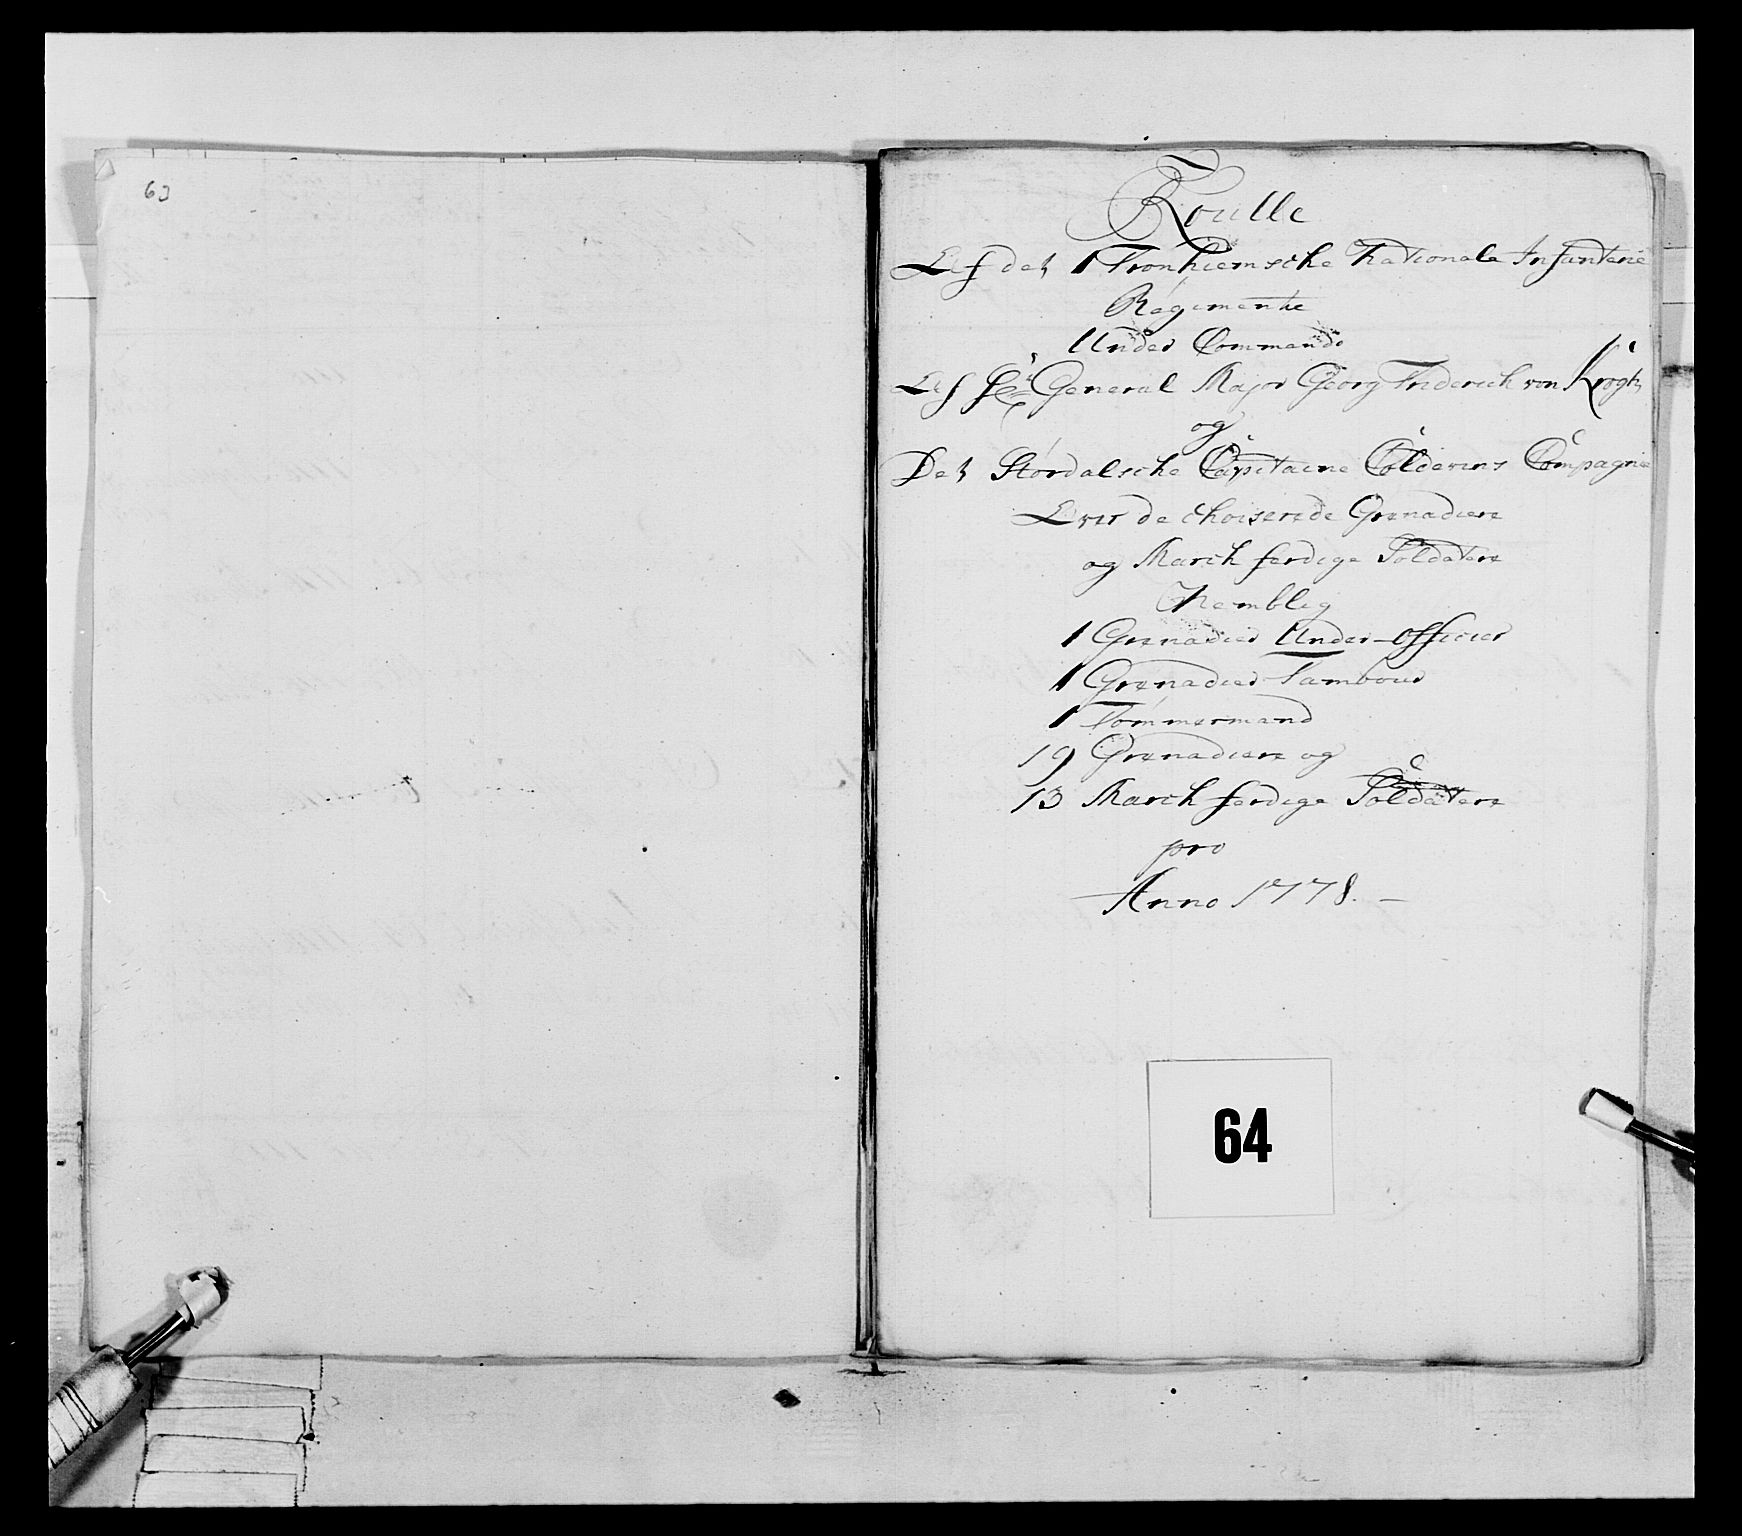 63
Roulle
Af det 1 Tronhiemsche Nationale Infanterie
Regimente
Under Commando
Af Hr General Major Georg Friderich von Krogh
og
Det Stördalsche Capitaine Coldevins Compagnie
Over de Choiserede Grenadiere
og March ferdige Soldatere
Nemblig
1 Grenadier Under-Officier
1 Grenadier Tambour
1 Tömmermand
19 Grenadiere og
13 March ferdige Soldatere
pro
Anno 1778. -
64